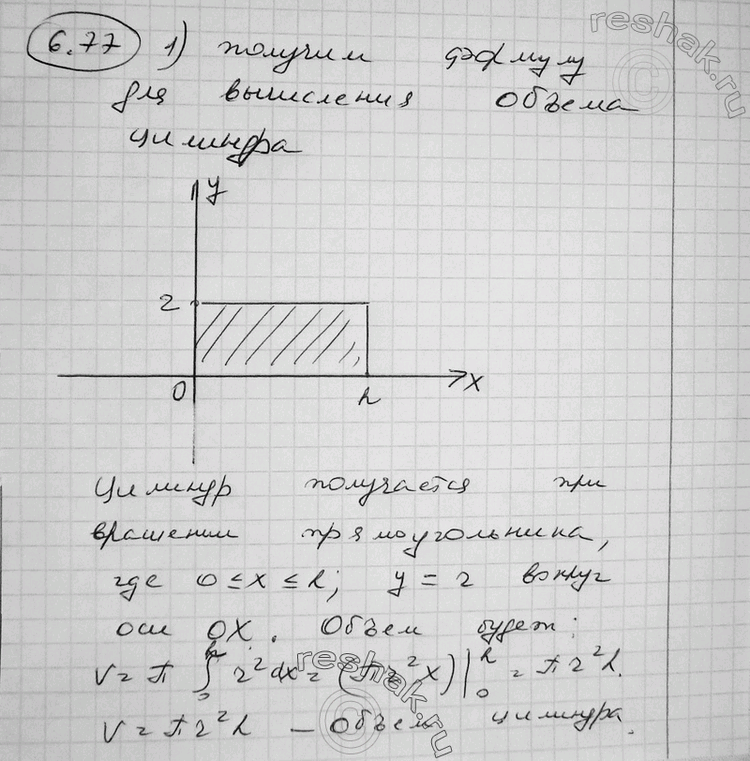 6.77 1) получим формулу
для вычисления объема
цилиндра
y
r
0 h x
Цилиндр получается при
вращении прямоугольника,
где 0 ≤ x ≤ h; y = r вокруг
оси OX. Объем будет:
V = π ∫₀ʰ r² dx = (π r² x)|₀ʰ = π r² h.
V = π r² h – объем цилиндра.
reshak.ru
reshak.ru